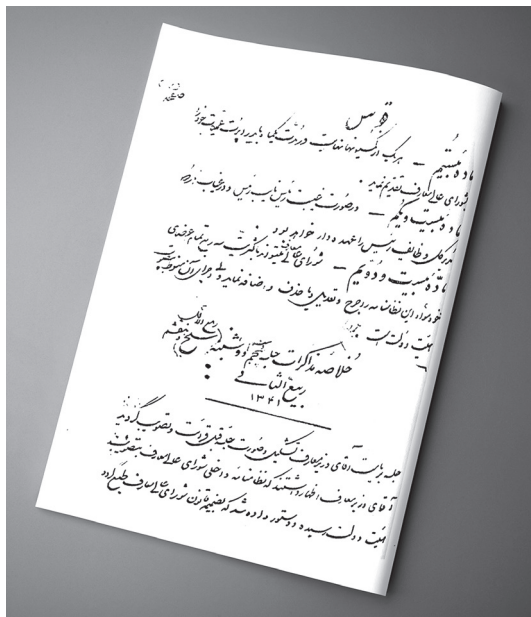 ماده بیستم — هر یک از کمیسیونها نهایت در مدت یکماه باید راپرت عملیات خود را
بشورای عالی معارف تقدیم نماید.
ماده بیست و یکم — در صورت غیبت رئیس نایب رئیس و در غیاب هر دو
وظایف رئیس را عهده دار خواهد بود
ماده بیست و دویم — شورای عالی معارف میتواند با اکثریت سه ربع تمام اعضای
خود مواد این نظامنامه را جرح و تعدیل یا حذف و اضافه نماید ولی اجرای آن
هیئت دولت است
خلاصه مذاکرات جلسه پنجم دوشنبه
ربیع الثانی
۱۳۴۱
جلسه بریاست آقای وزیر معارف تشکیل و صورت جلسه قبل قرائت و تصویب گردید
آقای وزیر معارف اظهار داشتند که نظامنامه داخلی شورای عالی معارف بتصویب
هیئت دولت رسیده و دستور داده شد که بضمیمه قانون شورای عالی معارف طبع گردد